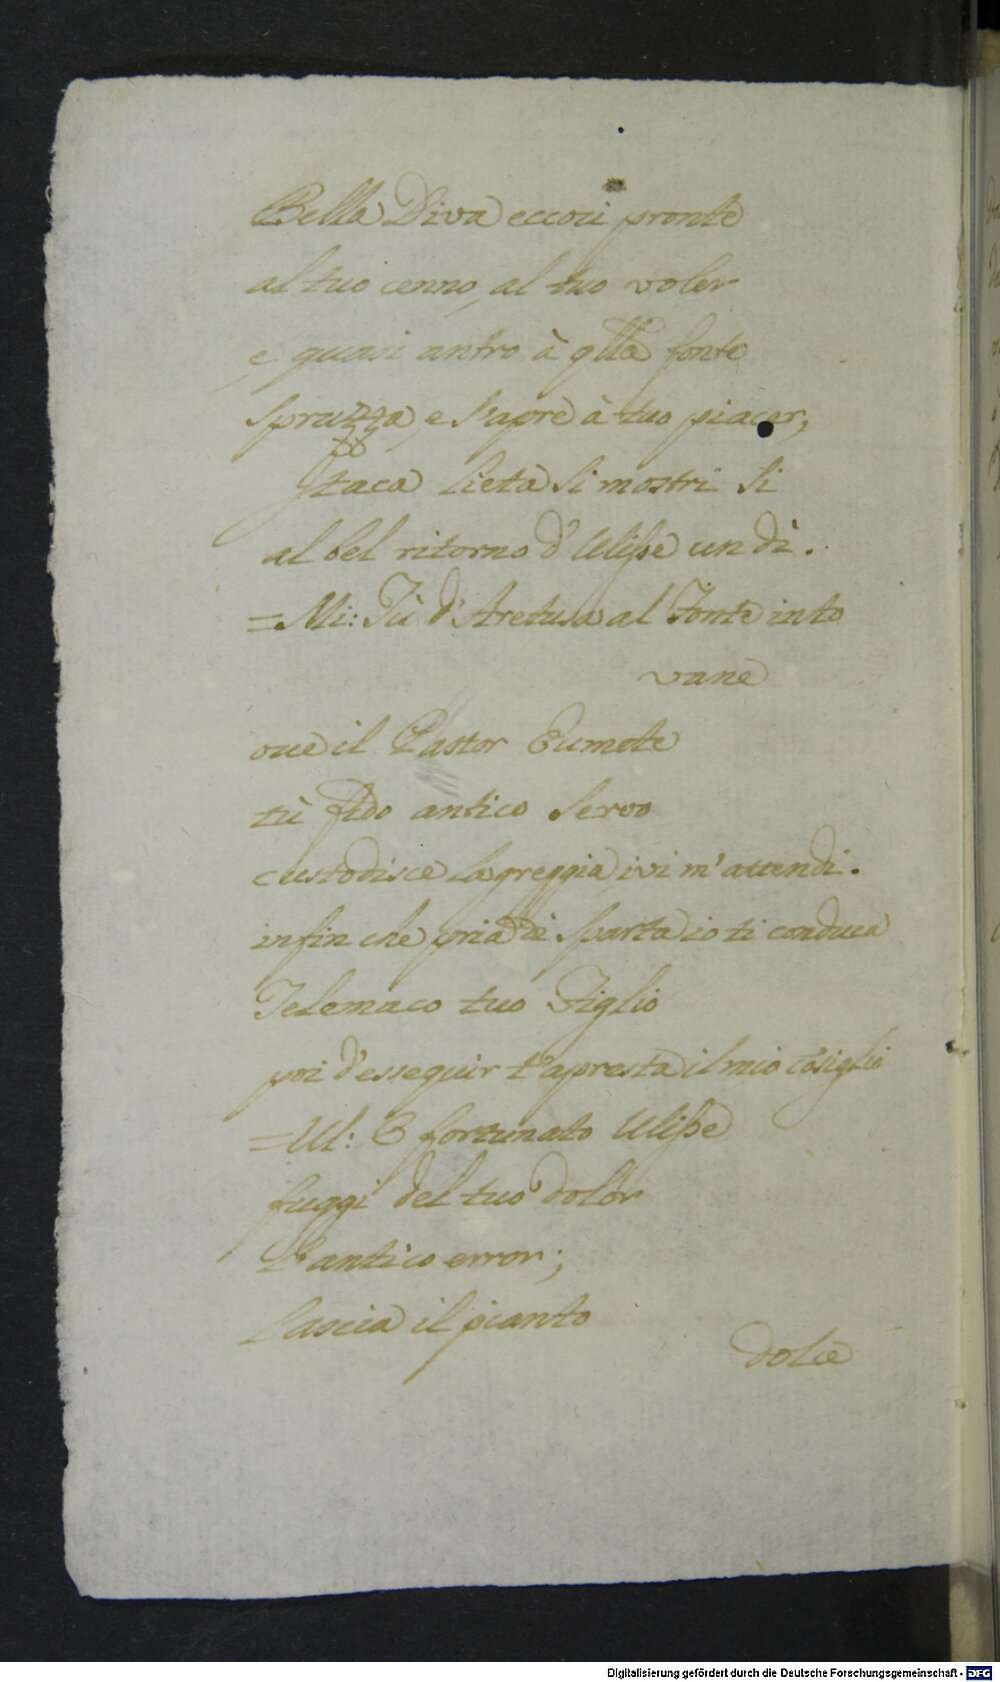 Bella Diva eccoci pronte
al tuo cenno, al tuo voler
e quasi antro à qlla fonte
spruzza, e s'apre à tuo piacer,
Itaca lieta si mostri si
al bel ritorno d' Ulisse un dì.
=Mi: Tù d'Aretusa al Fonte into
vane
oue il Pastor Eumete
tù fido antico servo
custodisce la greggia, ivi m'attendi.
infin che pria di Sparta io ti conduca
Telemaco tuo Figlio
poi d'essequir t'apresta il mio cõsiglio
=Ul: O fortunato Ulisse
fuggi del tuo dolor
l'antico error;
lascia il pianto
dolce
Digitalisierung gefördert durch die Deutsche Forschungsgemeinschaft - DFG